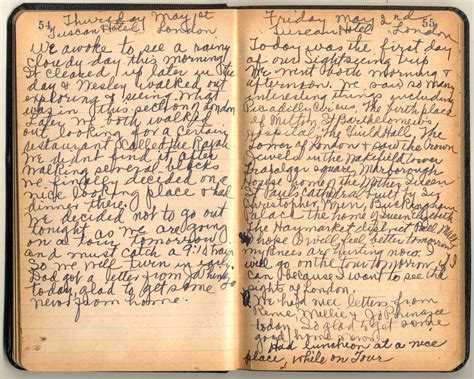 54
Thursday May 1st
Tuscan Hotel London
We awoke to see a rainy
cloudy day this morning
It cleared up later in the
day & Wesley walked out
exploring & seeing what
was in this section of London
Later we both walked
out looking for a certain
restaurant called the
We didnt find it after
walking several blocks
we finally decided on a
nice looking place & had
dinner there.
We decided not to go out
tonight as we are going
on a tour tomorrow
and must catch a 9:
So we will turn in early
Dad got a letter from
today, glad to get some
news from home.
55
Friday May 2nd
Tuscan Hotel London
Today was the first day
of our sightseeing trip
We went both morning &
afternoon. We saw so many
interesting things including
Picadilly Circus, The birth place
of Milton, St Bartholomew's
Hospital, The Guild Hall, The
Tower of London & saw the Crown
Jewels in the Wakefield tower
Trafalgar square, Marlborough
House home of the Mother Queen
St Pauls Cathedral built by Sir
Christopher Wren, Buckingham
Palace the home of Queen Elizabeth
The Haymarket district Pall Mall
I hope I will feel better tomorrow
my are hurting now. I
will go on the Tour tomorrow if I
can because I want to see the
sights of London.
We had nice letters from
Rene, Mellie &
today. So glad to get some
good home news.
Had luncheon at a nice
place, while on Tour